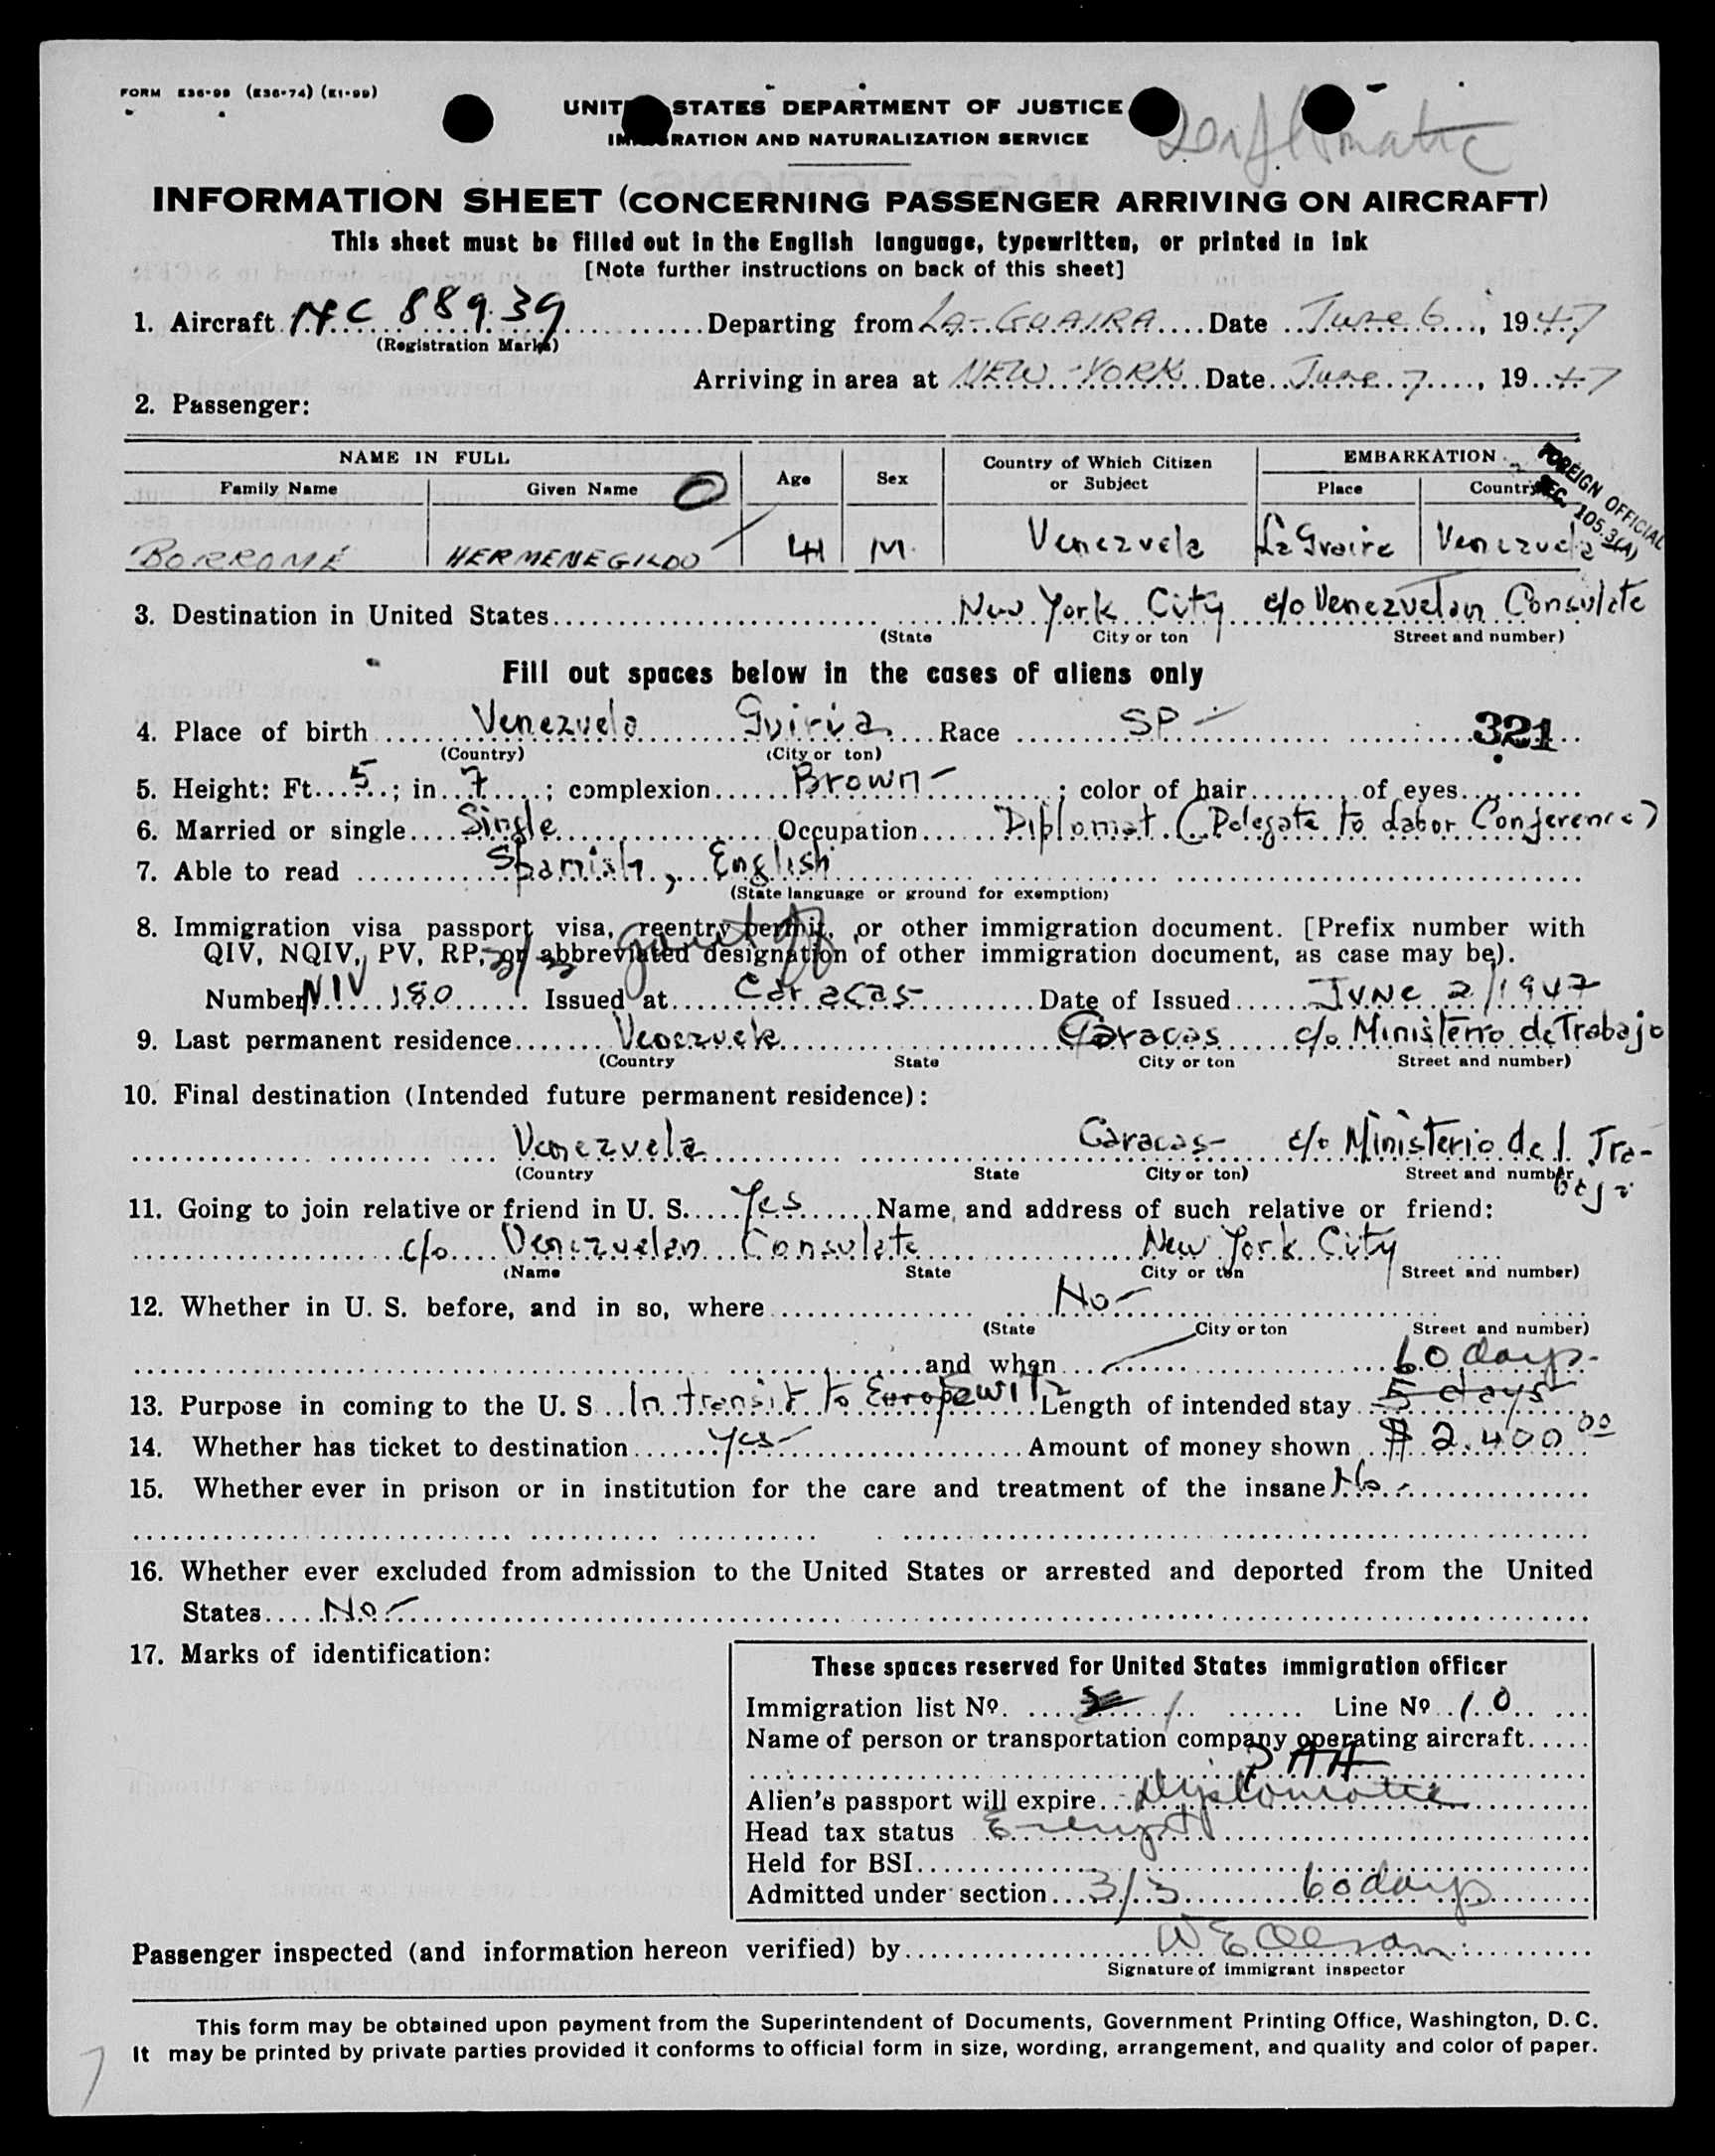 FORM E36-99 (E36-74) (E1-99)
UNIT STATES DEPARTMENT OF JUSTICE
IM RATION AND NATURALIZATION SERVICE
INFORMATION SHEET (CONCERNING PASSENGER ARRIVING ON AIRCRAFT)
This sheet must be filled out in the English language, typewritten, or printed in ink
[Note further instructions on back of this sheet]
1. Aircraft NC 88939 Departing from LA-GUAIRA Date June 6, 1947
(Registration Marks)
Arriving in area at NEW YORK Date June 7, 1947
2. Passenger:
NAME IN FULL Age Sex Country of Which Citizen or Subject EMBARKATION
Family Name Given Name Place Country
FOREIGN OFFICIAL
SEC. 105.3(4)
BORROMÉ HERMENEGILDO 41 M. Venezuela La Guaira Venezuela
3. Destination in United States New York City c/o Venezuelan Consulate
(State City or ton Street and number)
Fill out spaces below in the cases of aliens only
4. Place of birth Venezuela Guiria Race SP- 321
(Country) (City or ton)
5. Height: Ft. 5; in. 7; complexion Brown-; color of hair of eyes
6. Married or single Single Occupation Diplomat (Delegate to Labor Conference)
7. Able to read Spanish, English
(State language or ground for exemption)
8. Immigration visa passport visa, reentry permit, or other immigration document. [Prefix number with
QIV, NQIV, PV, RP, or abbreviated designation of other immigration document, as case may be).
Number NIV 180 Issued at Caracas Date of Issued June 2/1947
9. Last permanent residence Venezuela Caracas c/o Ministerio de Trabajo
(Country State City or ton Street and number)
10. Final destination (Intended future permanent residence):
Venezuela Caracas- c/o Ministerio del Tra-
bajo
(Country State City or ton) Street and number
11. Going to join relative or friend in U. S. Yes Name, and address of such relative or friend:
c/o Venezuelan Consulate New York City
(Name State City or ton Street and number)
12. Whether in U. S. before, and in so, where No-
(State City or ton Street and number)
and when 60 days-
13. Purpose in coming to the U. S. In transit to Europe Length of intended stay 5 days
14. Whether has ticket to destination Yes- Amount of money shown $ 2.400 00
15. Whether ever in prison or in institution for the care and treatment of the insane No.-
16. Whether ever excluded from admission to the United States or arrested and deported from the United
States No-
17. Marks of identification:
These spaces reserved for United States immigration officer
Immigration list No. 1 Line No 10
Name of person or transportation company operating aircraft
PAA
Alien's passport will expire Diplomatic
Head tax status Exempt
Held for BSI
Admitted under section 3/3 60 days
Passenger inspected (and information hereon verified) by
Signature of immigrant inspector
This form may be obtained upon payment from the Superintendent of Documents, Government Printing Office, Washington, D. C.
It may be printed by private parties provided it conforms to official form in size, wording, arrangement, and quality and color of paper.